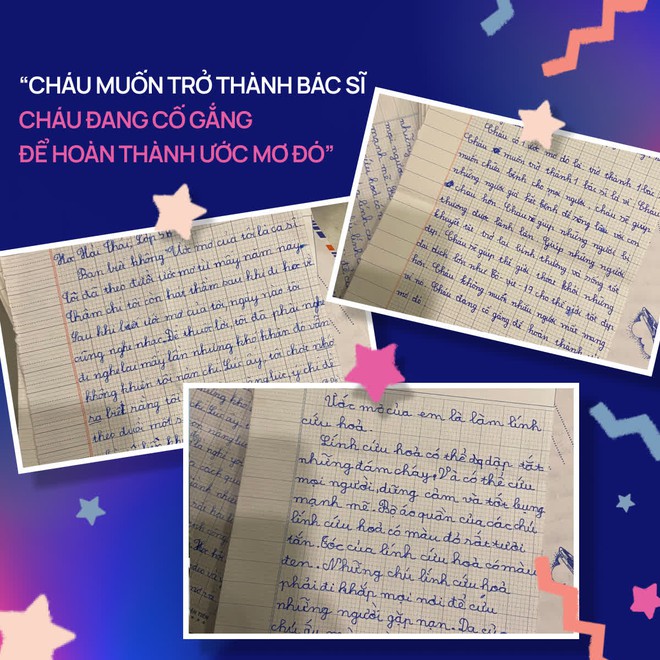 “CHÁU MUỐN TRỞ THÀNH BÁC SĨ
CHÁU ĐANG CỐ GẮNG
ĐỂ HOÀN THÀNH ƯỚC MƠ ĐÓ”
Cháu có 1 ước mơ đó là trở thành 1 bác
Cháu muốn trở thành 1 bác sĩ là vì. Cháu
muốn chữa bệnh cho mọi người cháu sẽ giúp
những người già hết bệnh để sống lâu với con
cháu hơn. Cháu sẽ giúp những người bị
thương được lành lặn. Giúp những người
khuyết tứ trở lại bình thường và sống tốt
đẹp. Cháu sẽ giúp thế giới thoát khỏi những
đại dịch lớn như Bô-vit-19 cho thế giới tốt đẹp
hơn. Cháu không muốn nhiều người mất mạng
vì nó. Cháu đang cố gắng để hoàn thành
mơ đó
Hà Hải Thái, Lớp
Bạn biết không Ước mơ của tôi là ca sĩ.
Tôi đã theo đuổi ước mơ từ mấy năm nay
Thậm chí tôi còn hát thầm sau khi đi học về
Sau khi biết ước mơ của tôi, ngày nào tôi
cũng nghe nhạc. Để thuộc lời, tôi đã phải nghe
đi nghe lại mấy lần những khó khăn đó vẫn
không khiến tôi nản chí. Lúc ấy, tôi chợt nhớ
ra biết rằng tôi
theo đuổi một s
Ước mơ của em là làm lính
cứu hoả.
Lính cứu hoả có thể dập tắt
những đám cháy. Và có thể cứu
mọi người, dũng cảm và tốt bụng
mạnh mẽ. Bộ áo quần của các chú
lính cứu hoả có màu đỏ rất tươi
tắn. Tóc của lính cứu hoả có màu
đen. Những chú lính cứu hoả
phải đi khắp mọi nơi để cứu
những người gặp nạn. Da của
chú ấy